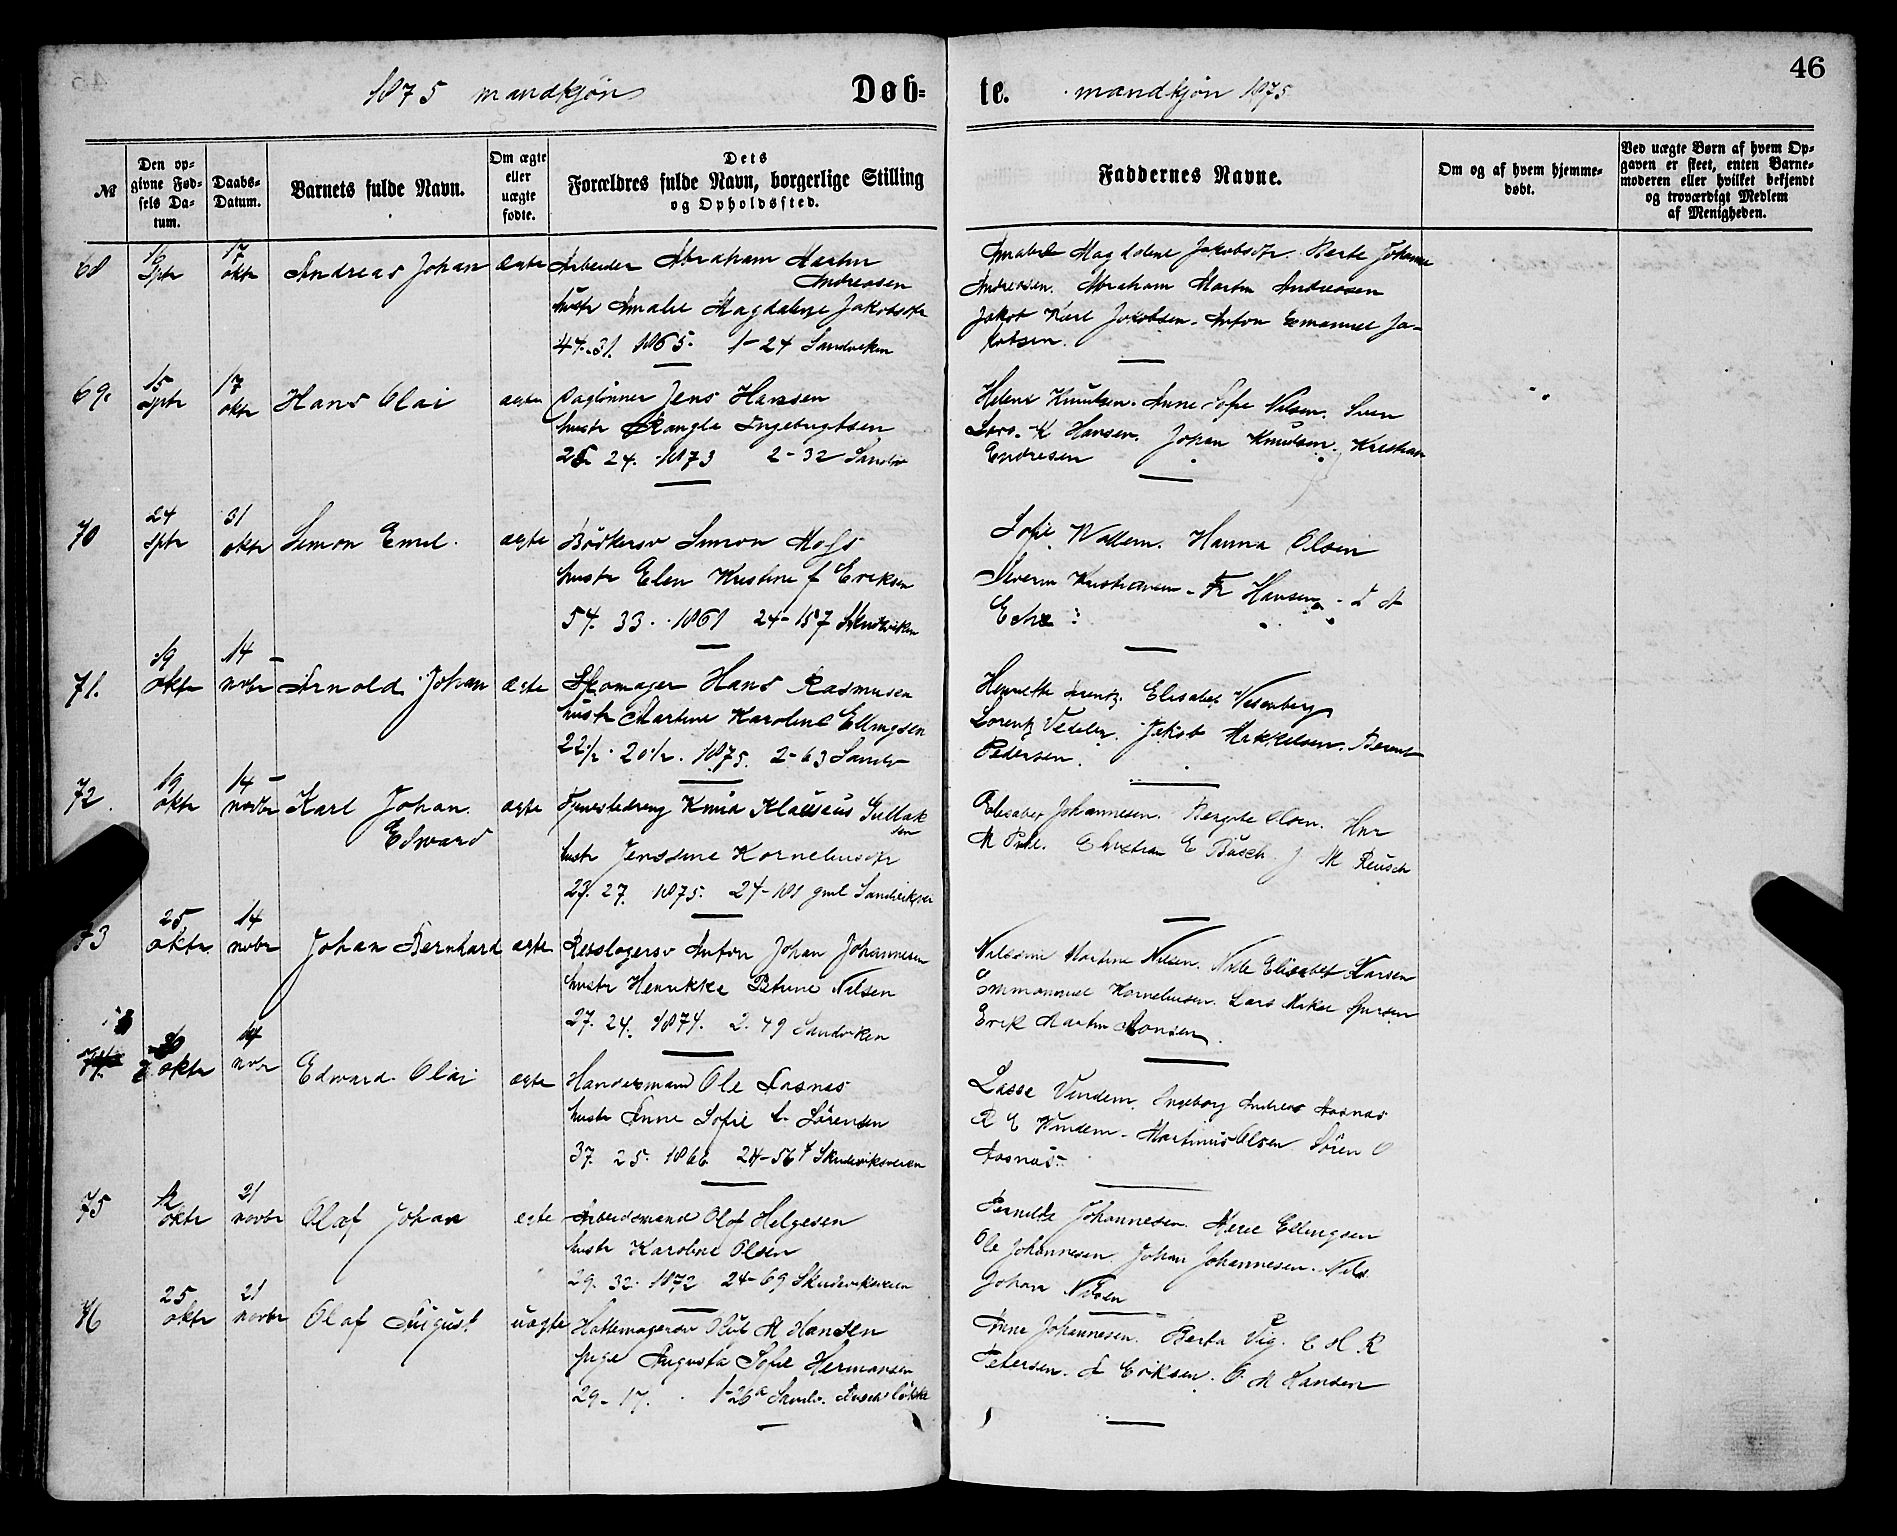 46
1875 mandkjøn Døb-
te. mandkjøn 1875
№
Den op-
givne Fød-
sels Da-
tum.
Daabs-
Datum.
Barnets fulde Navn.
Om ægte
eller
uægte
fødte.
Dets
Forældres fulde Navn, borgerlige Stilling
og Opholdssted.
Faddernes Navne.
Om og af hvem hjemme-
døbt.
Ved uægte Børn af hvem Op-
gaven er skeet, enten Barne-
moderen eller hvilket bekjendt
og troværdigt Medlem
af Menigheden.
68 Sptr 17 oktr Andreas Johan ægte Arbeider Abraham Martin
Andreasen
hustr Amalie Magdalene Jakobsdtr
44. 31. 1865. 1-24 Sandviken
Magdalene Jakobsdtr. Berte Johanne
Andreasen. Abraham Martin Andreasen
Jakob Karl Jakobsen. Anton Emanuel Ja-
kobsen.
69. 15 sptr 17 oktr Hans Olai ægte Daglönner Jens Hansen
hustr Rangla Ingebrigtsen
24. 1873 2-32 Sandv
Helene Knudsen. Anne Sofie Nilsen. Sven
Lars. K Hansen. Johan Knudsen. Kristian
Endresen
70 24 sptr 31 oktr Simon Emil. ægte Bödkersv Simon
hustr Elen Kristine f Eriksen
54. 33. 1861 24-157 Skudeviken
Sofie Wallem. Hanna Olsen
Severin Kristiansen - Fr Hansen
71. 19 oktr 14 nvbr Arnold Johan ægte Skomager Hans Rasmusen
hustr Martine Karoline Ellingsen
22½. 20½. 1875. 2-63 Sandv
Henrette Elisabet Vesenberg
Lorentz Vedeler. Jakob Mikkelsen. Berent
Pedersen.
72. 19 oktr 14 novbr Karl Johan
Edward ægte Tjenestedreng Knud Klausius Gullak
sen
hustr Jensine Korneliusdtr
23. 27. 1875. 24-101 gml Sandviksvei
Elisabet Johannesen. Bergite Olsen. Hnr
M Christian E Busch. J M Reusch
73 25 oktr. 14 nobr Johan Bernhard ægte Rebslagersv Anton Johan Johannesen
hustr Henrikke Petrine Nilsen
27. 24. 1874. 2. 49 Sandviken
Nilsine Martine Nilsen. Elisabet Larsen
Emmanuel Korneliusen. Lars
Erik Martin Monsen.
oktr 14 nvbr Edward Olai ægte Handelsmand Ole Aasnæs
hustr Anne Sofie Sörensen
37. 25. 1866 24-56 Skudeviksveien
Lasse Vindem. Ingeborg Andrea Aasnæs
R E Vindem. Martinus Olsen Sören O
Aasnæs.
75 oktr 21 novbr Olaf Johan ægte Arbeidsmand Olof Helgesen
hustr Karoline Olsen
29. 32. 1872 24-69 Skudeviksveien
Pernille Johannesen. Ellingsen
Ole Johannesen. Johan Johannesen. Nils
Johan Nilsen
76 25 oktr 21 novbr Olaf August uægte Hattemagersv Oluf M Hansen
pige Augusta Sofie Hermansen
29 - 17. 1-26a Sandv.
Anne Johannesen. Berta Vig. C H R
Petersen. A Eriksen. O M Hansen